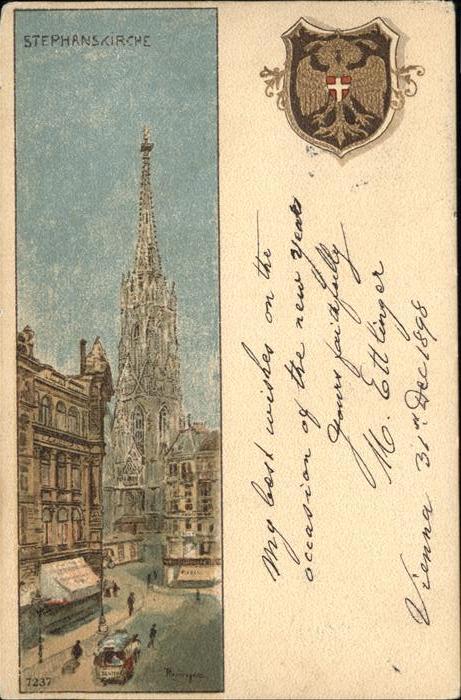 STEPHANSKIRCHE
My best wishes on the
occasion of the new years
yours faithfully
M. Ettlinger
Vienna 31st Dec 1898
7237